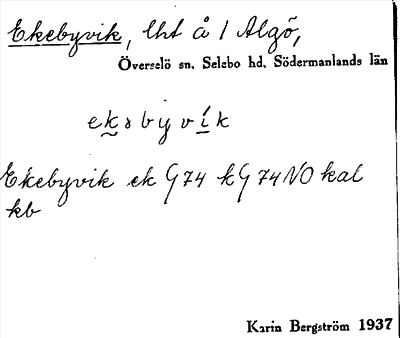 Ekebyvik, lht å / Algö,
Överselö sn. Selebo hd. Södermanlands län
ekəbyvik
Ekebyvik ek G 74 kG 74 NO kal
kb
Karin Bergström 1937